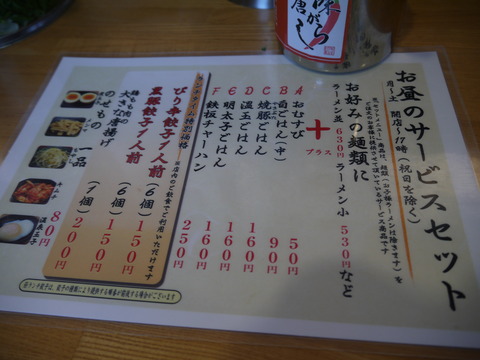 お昼のサービスセット
月〜土 開店〜17時(祝日を除く)
お好みの麺類に
ラーメン並 630円 ラーメン小 530円 など
+
プラス
A おむすび 50円
B 白ごはん(中) 90円
C 焼豚ごはん 160円
D 温玉ごはん 160円
E 明太子ごはん 160円
F 鉄板チャーハン 250円
ランチタイム特別価格
ぴり辛餃子1人前 (6個) 150円
黒豚餃子1人前 (6個) 150円
鶏もも肉の
大きな唐揚げ (1個) 200円
のせもの 一品 80円
キムチ
温泉玉子
唐し